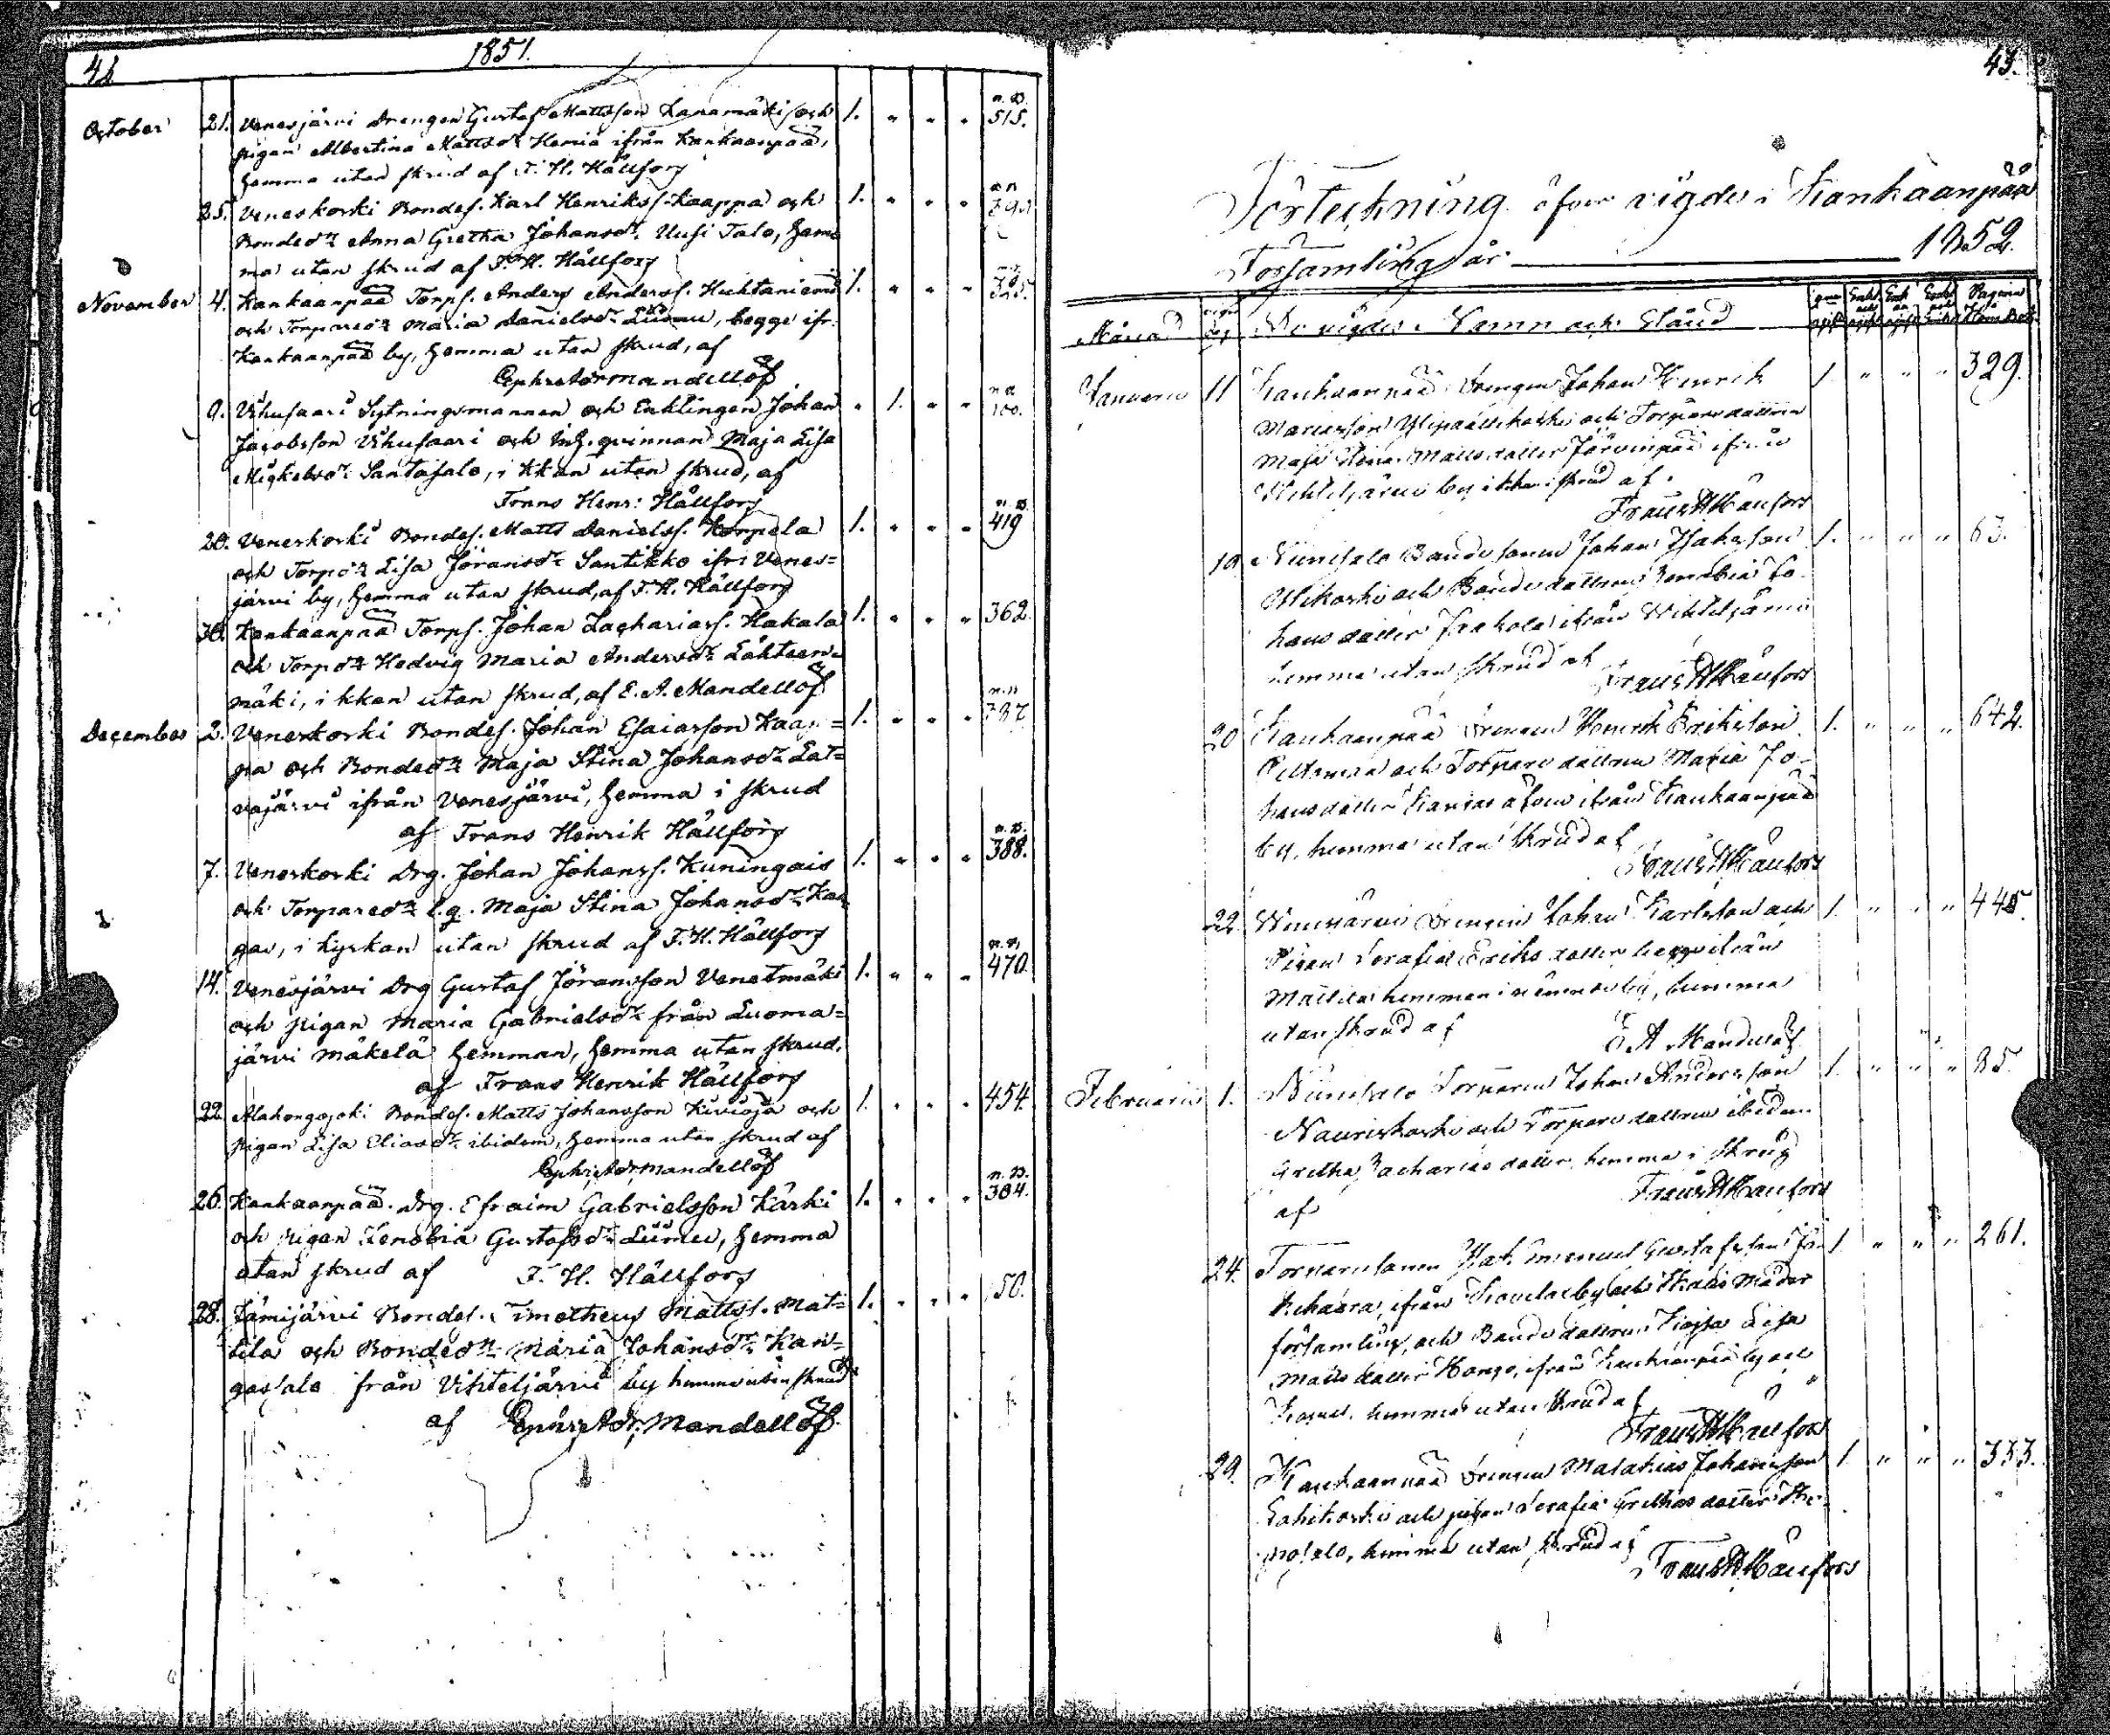 42
1851.
October 21. Venesjärvi Drengen Gustaf Mattsson Kanamäki och 1. " " " n.B. 515.
pigan Albertina Mattsdr Hernia ifrån Kankaanpää,
hemma utan skrud af F. H. Hållfors
25. Veneskoski Bondes. Karl Henrikss. Kaappa och 1. " " "
Bondedr Anna Gretha Johansdr Uusi Talo, hem=
ma utan skrud af F. H. Hållfors
November 4. Kankaanpää Torps. Anders Anderss. Huhtaniemi 1. " " "
och Torparedr Maria Danielsdr begge ifr.
Kankaanpää by, hemma utan skrud, af
Ephr Adr Mandellöf
9. Vihusaari Sytningsmannen och Enklingen Johan " 1. " " 100.
Jacobsson Vihusaari och Inh. qvinnan Maja Lisa
Mickelsdr Santasalo, i kkan utan skrud, af
Frans Henr: Hållfors
20. Veneskoski Bondes. Matts Danielss. Korpela 1. " " " 419
och Torpdr Lisa Jöransdr Santikko ifr: Venes=
järvi by, hemma utan skrud, af F. H. Hållfors
30. Kankaanpää Torps. Johan Zachariass. Hakala 1. " " " 362.
och Torpdr Hedvig Maria Andersdr Lähteen=
mäki, i kkan utan skrud, af E. A. Mandellöf
December 2. Veneskoski Bondes. Johan Esaiasson Kaap= 1. " " "
pa och Bondedr Maja Stina Johansdr Lat=
vajärvi ifrån Venesjärvi, hemma i skrud
af Frans Henrik Hållfors
7. Veneskoski Drg. Johan Johanss. Kuningais 1. " " " n.B. 388.
och Torparedr Maja Stina Johansdr Kan=
gas, i kyrkan utan skrud af F. H. Hållfors
14. Venesjärvi Drg Gustaf Jöransson Venetmäki 1. " " " 470.
och pigan Maria Gabrielsdr från Luoma=
järvi Mäkelä hemman, hemma utan skrud,
af Frans Henrik Hållfors
22. Alahongojoki Bondes. Matts Johansson Kivioja och 1. " " " 454.
pigan Lisa Eliasdr ibidem, hemma utan skrud af
Ephr Adr Mandellöf
26. Kankaanpää. Drg. Efraim Gabrielsson Kärki 1. " " " n.B. 304.
och pigan Zenobia Gustafsdr hemma
utan skrud af F. H. Hållfors
28. Jämijärvi Bondes. Timotheus Mattss. Mat= 1. " " " 50.
tila och Bondedr Maria Johansdr Kan=
gassalo från Vihteljärvi by hemma utan skrud
af Ephr Adr. Mandellöf
43.
Förteckning öfver vigde i Kankaanpää
Församling år 1852.
Månad De vigdes Namn och Stånd
Januarii 11 Kankaanpää Drengen Johan Henrik 1. " " " 329.
och Torparedottren
Maja Stina Mattsdotter Järvinpää ifrån
Vihteljärvi by i kkan i skrud af
Frans H Hållfors
19. Niinisalo Bondesonen Johan Isaksson 1. " " " 63.
och Bondedottren Zenobia Jo
hansdotter Jaakola ifrån Vihteljärvi
hemma utan skrud af
Frans H Hållfors
20 Kankaanpää Drengen Henrik Eriksson 1. " " " 642.
och Torparedottren Maria Jo-
hansdotter Kangas ifrån Kankaanpää
by, hemma utan skrud af
Frans H Hållfors
22. Venesjärvi Drengen Johan Karlsson och 1. " " " 445.
Pigan Serafia Eriksdotter begge ifrån
Mattila hemman i by, hemma
utan skrud af
E A Mandellöf
Februarii 1. Niinisalo Torparen Johan Andersson 1. " " " 85.
Nauriskoski och Torparedottren ibidem
Gretha Zachariasdotter hemma i skrud
af Frans H Hållfors
24. Torparesonen Gustafsson 1. " " " 261.
ifrån
församling, och Bondedottren Kajsa Lisa
Mattsdotter Hongo, ifrån Kankaanpää by och
hemma utan skrud af
Frans H Hållfors
29. Kankaanpää Drengen Malakias Johansson 1. " " " 333.
Lahikoski och pigan Serafia
hemma utan skrud af
Frans H Hållfors